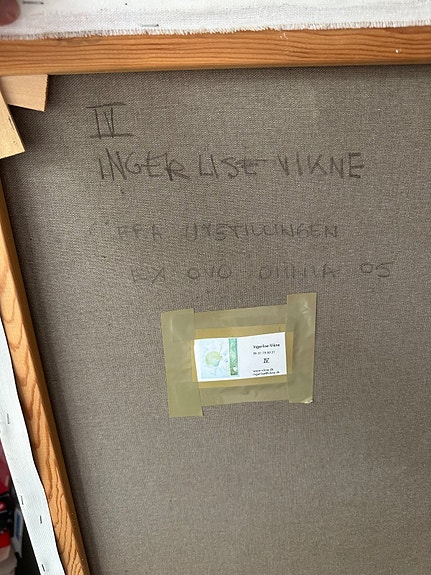 IV
INGER LISE VIKNE
FRA UDSTILLINGEN
EX OVO OMNIA 05
Ingerlise Vikne
IV
www.vikne.dk